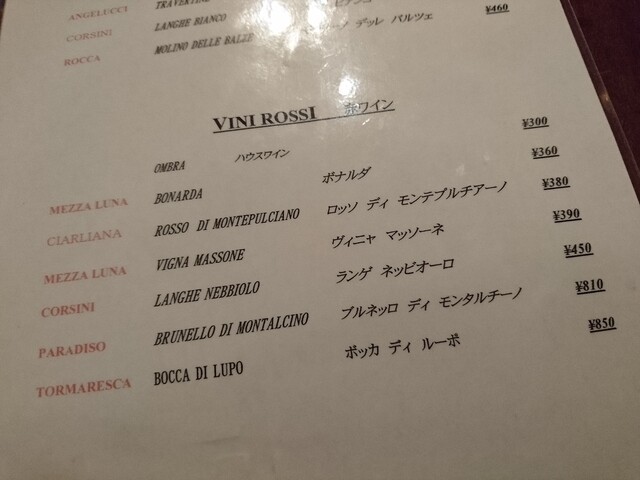 ANGELUCCI
CORSINI LANGHE BIANCO
ROCCA MOLINO DELLE BALZE デッレ バルツェ ¥460
VINI ROSSI 赤ワイン
OMBRA ハウスワイン ¥300
MEZZA LUNA BONARDA ボナルダ ¥360
CIARLIANA ROSSO DI MONTEPULCIANO ロッソ ディ モンテプルチアーノ ¥380
MEZZA LUNA VIGNA MASSONE ヴィニャ マッソーネ ¥390
CORSINI LANGHE NEBBIOLO ランゲ ネッビオーロ ¥450
PARADISO BRUNELLO DI MONTALCINO ブルネッロ ディ モンタルチーノ ¥810
TORMARESCA BOCCA DI LUPO ボッカ ディ ルーポ ¥850